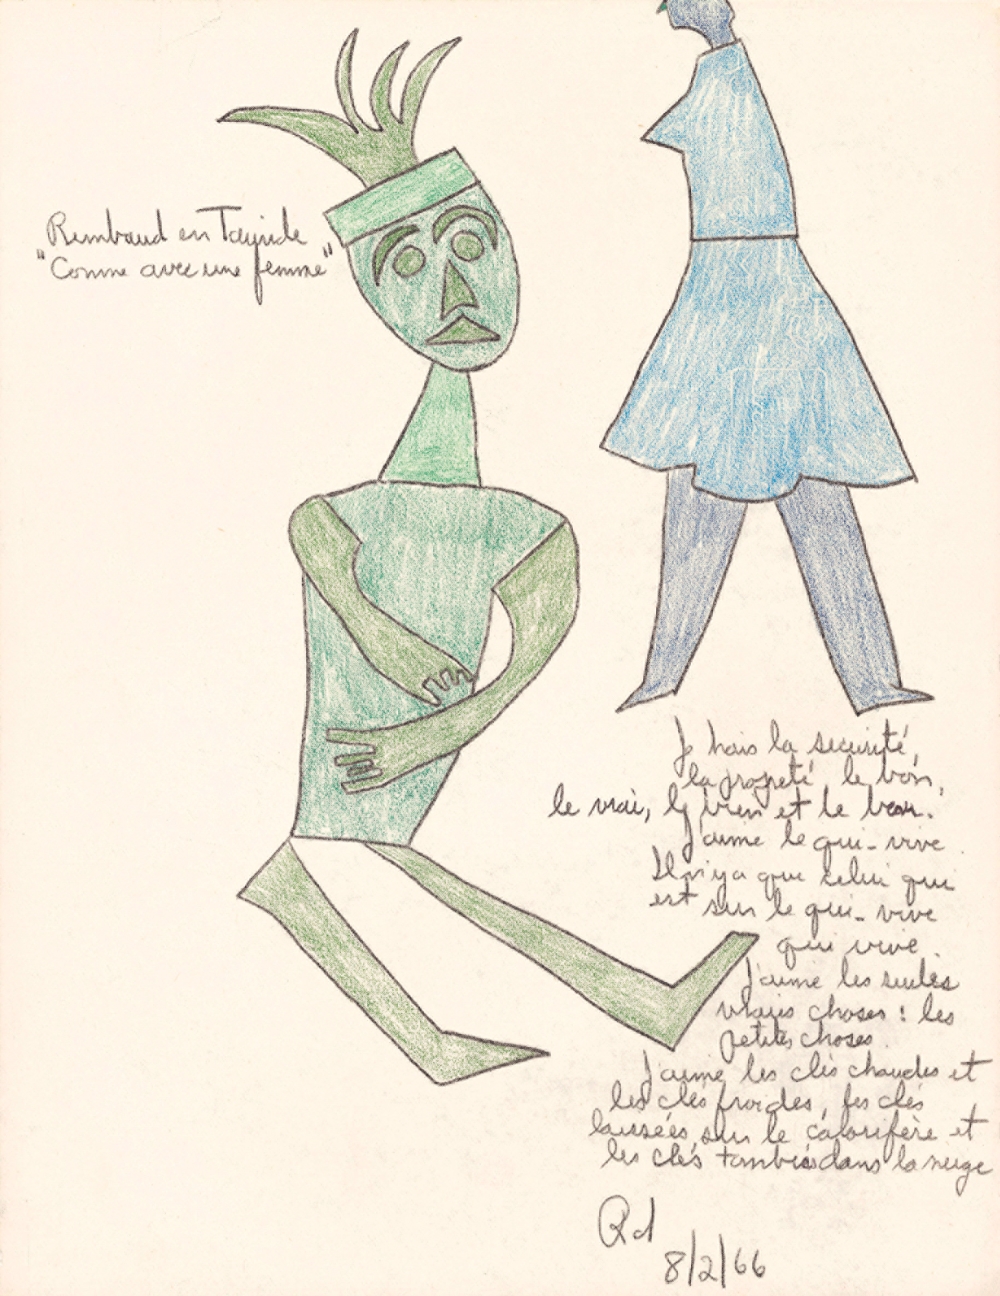 Rimbaud en Tauride
"Comme avec une femme"
Je hais la sécurité,
la propreté, le bon,
le vrai, le bien et le beau.
J'aime le qui-vive
Il n'y a que celui qui
est sur le qui-vive
qui vive.
J'aime les seules
vraies choses : les
petites choses.
J'aime les clés chaudes et
les clés froides, les clés
laissées sur le calorifère et
les clés tombées dans la neige
Rd
8/2/66